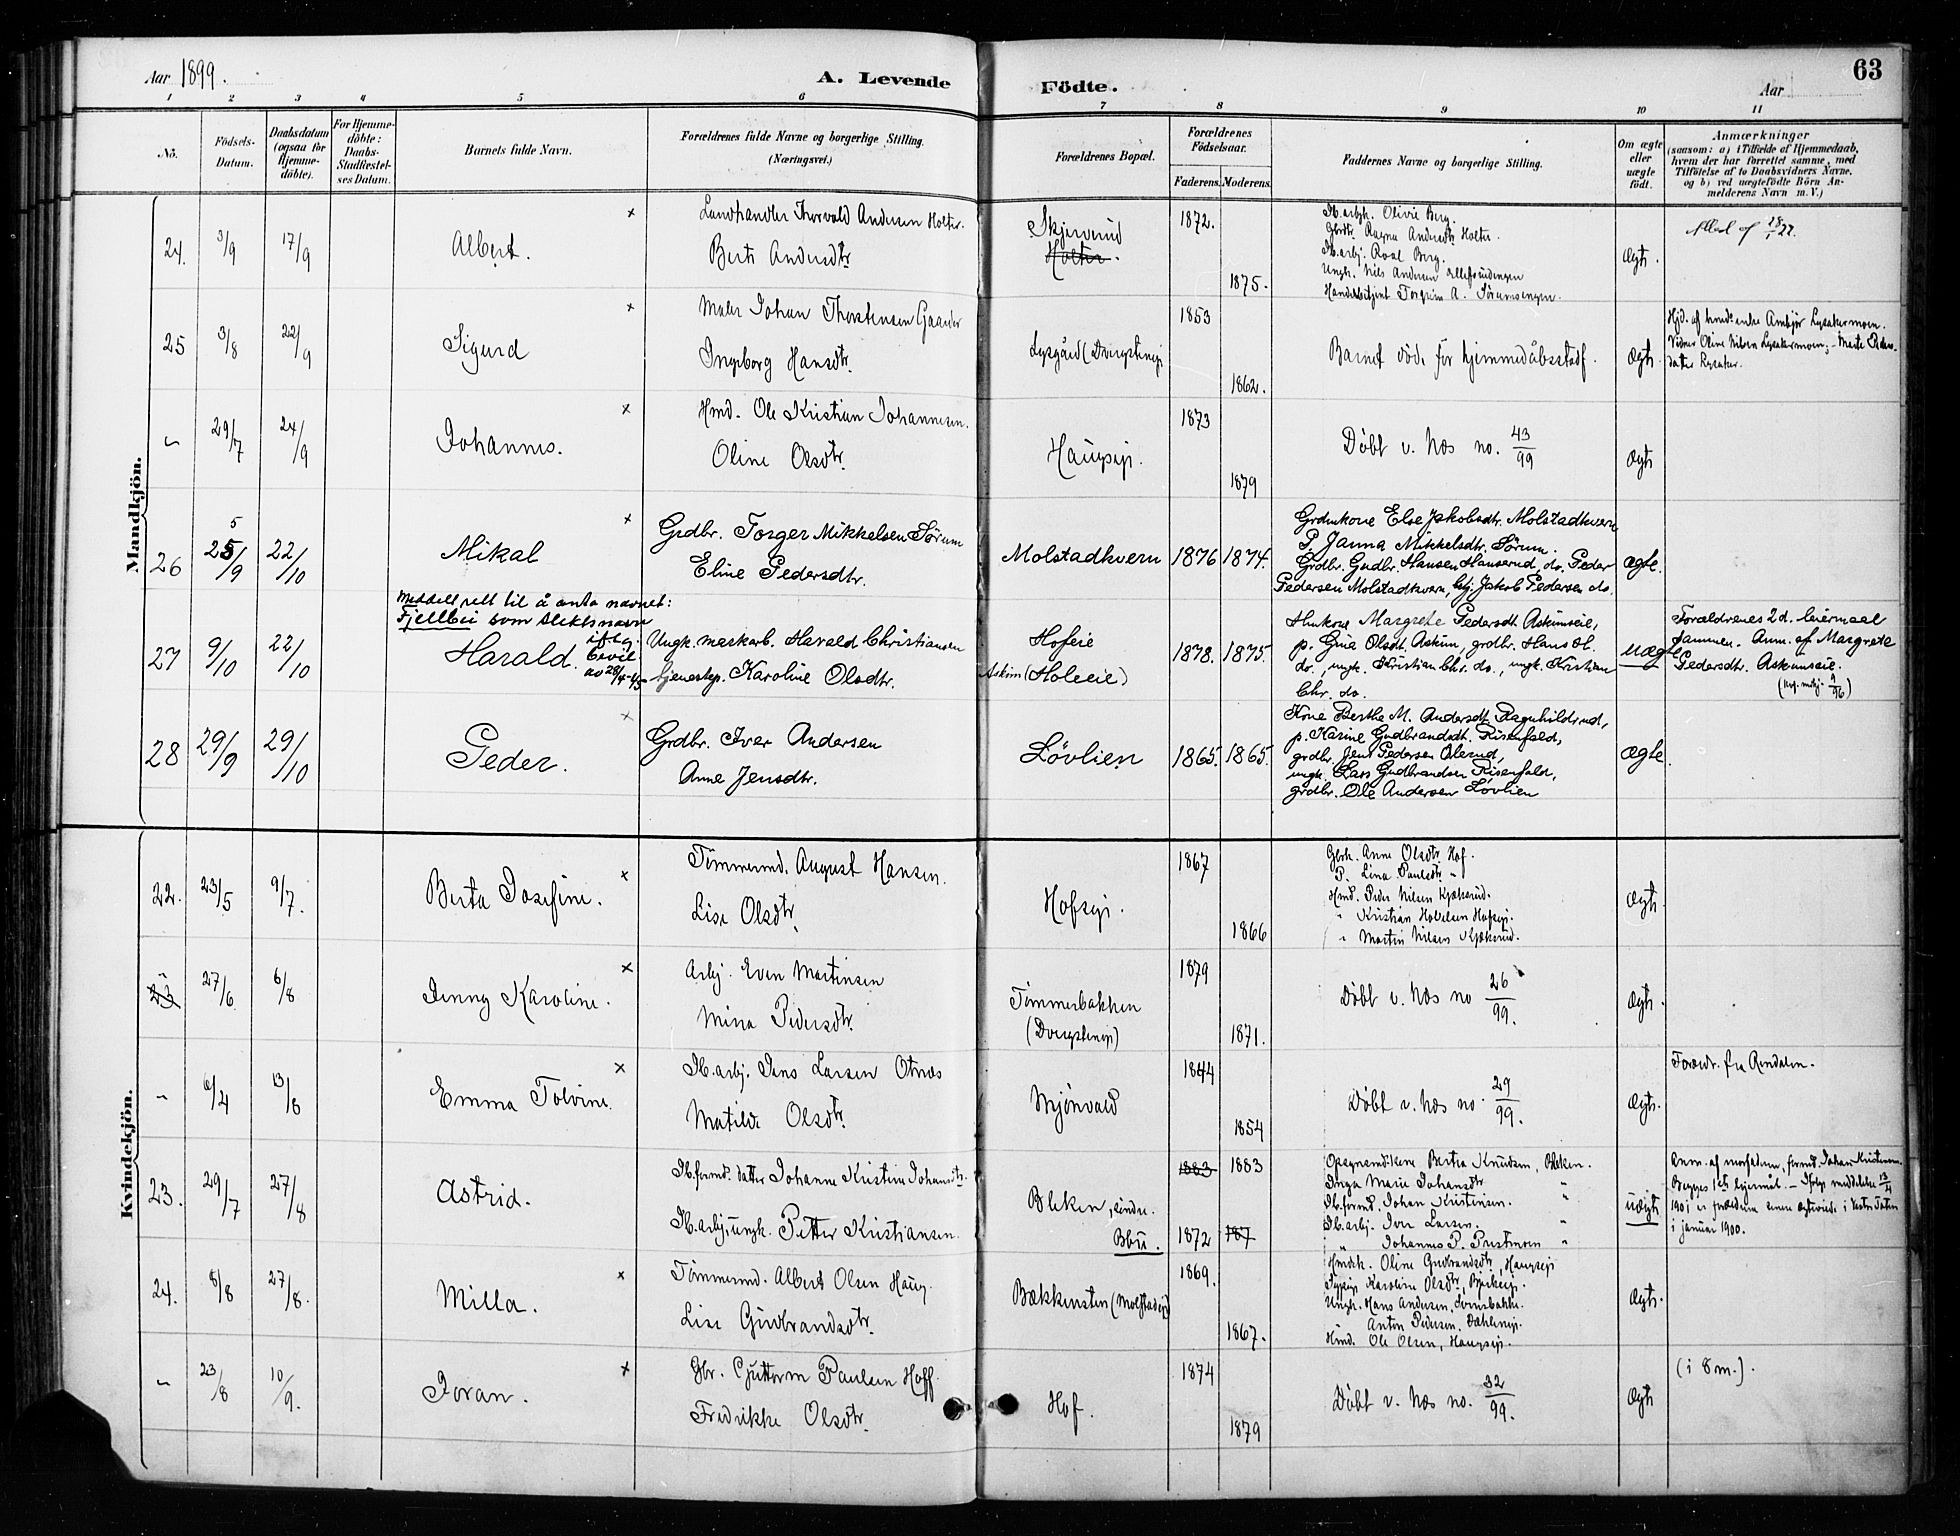 Aar 1899.
A. Levende Födte.
Aar
63
1 2 3 4 5 6 7 8 9 10 11
No.
Födsels-Datum.
Daabsdatum (ogsaa for Hjemme-döbte).
For Hjemme-döbte: Daabs-Stadfæstel-ses Datum.
Barnets fulde Navn.
Forældrenes fulde Navne og borgerlige Stilling.
(Næringsvei.)
Forældrenes Bopæl.
Forældrenes Födselsaar.
Faderens. Moderens.
Faddernes Navne og borgerlige Stilling.
Om ægte eller uægte födt.
Anmærkninger
(saasom: a) i Tilfælde af Hjemmedaab,
hvem der har forrettet samme, med
Tilföielse af to Daabsvidners Navne,
og b) ved uægtefödte Börn An-
melderens Navn m. V.)
Mandkjön.
24. 3/9 17/9 Albert. ×
Landhandler Thorvald Andersen Holter.
Berte Andersdtr.
Skjerverud
Holter.
1872. 1875.
Olivie Berg.
Ragna Andersdtr Holter.
Roal Berg.
Ungk. Nils Andersen
Handelsbetjent Torgrim A.
Ægte.
25 3/8 22/9 Sigurd ×
Maler Johan Thorstensen Gaarder
Ingeborg Hansdtr.
Lysgård (Dvergsteneje
1853 1862.
Barnet döde för hjemmedåbsstadf.
Ægte.
Hjd. af hmds enke Lysakermoen.
Vidner Oline Nilsen Lysakermoen; Marte Peders-
datter Lysaker.
" 29/7 24/9 Johannes. ×
Hmd. Ole Kristian Johannesen.
Oline Olsdtr.
Haugseje.
1873 1879
Döbt v. Næs no. 43/99
Ægte
26 25/9 5 22/10 Mikal ×
Grdbr. Torger Mikkelsen Sörum
Eline Pedersdtr.
Molstadkvern 1876 1874.
Grdmkone Else Jakobsdtr. Molstadkvern
P. Janna Mikkelsdtr. Sörum.
Grdbr. Gudbr. Hansen Hanserud, do. Peder
Pedersen Molstadkvern, Jakob Pedersen do.
Ægte.
Meddelt rett til å anta navnet:
Fjellbei som slektsnavn
iflg.
bevil.
av 28/4-45
27 9/10 22/10 Harald.
Ungk. maskarb. Harald Christiansen
tjenestep. Karoline Olsdtr.
Hofeie
Askim (Holeeie)
1878. 1875.
Hmkone Margrete Pedersdt. Askimseie,
p. Gine Olsdt. Askim, grdbr. Hans H.
do., ungk. Kristian Chr. do., ungk. Kristian
Chr. do.
uægte
Forældrenes 2d. leiermaal
sammen. Anm. af Margrete
Pedersdt. Askimseie.
9/96
28 29/9 29/10 Peder. ×
Grdbr. Iver Andersen
Anne Jensdtr.
Lövlien 1865. 1865.
Kone Berthe M. Andersdt. Ragnhildrud,
p. Karine Gudbrandsdt. Risenfald,
grdbr. Jens Pedersen Olerud,
ungk. Lars Gudbrandsen Risenfald,
grdbr. Ole Andersen Lövlien
Ægte.
Kvindekjön.
22. 23/5 9/7. Berta Josefine. ×
Tömmermd. August Hansen.
Lise Olsdtr.
Hofseje.
1867 1866
Gbrk. Anne Olsdtr. Hof.
P. Lina Paulsdtr. "
Hmd. Peder Nilsen Kjækerud.
" Kristian Hofseje.
" Martin Nilsen Kjækerud.
Ægte.
" 23 27/6 6/8 Jenny Karoline. ×
Arbj. Even Martinsen
Mina Pedersdtr.
Tömmerbakken
(Dvergsteneje)
1879 1871.
Döbt v. Næs no 26/99.
Ægte.
" 6/4 13/8 Emma Tolvine. ×
Jb.arbj. Jens Larsen Otnes
Matilde Olsdtr.
Mjönvald
1844 1854
Döbt v. Næs no 29/99.
Ægte.
Forældr. fra Rendalen.
23. 29/7 27/8 Astrid.
Jb.formd. datter Johanne Kristine Johansdtr.
Jb.arbj. ungk. Petter Kristiansen.
Bleken, söndre.
1883 1883
1872 187
Bertea Knudsen, Bleken.
Inga Marie Johansdtr "
Jb.formd. Johan Kristensen. "
Jb.arbj. Iver Larsen. "
" Johannes P. "
uægte
Anm. af morfaderen, formd. Johan Kristensen.
Begges 1ste lejermål. – Ifölge meddelelse 13/4
1901 er forældrene senere ægteviede i Vestre Toten
i januar 1900.
24. 8/8 27/8. Milla. ×
Tömmermd. Albert Olsen Haug.
Lise Gudbrandsdtr.
Bækkensten (Molstadeje)
1869. 1867.
Hmdk. Oline Gudbrandsdtr, Haugseje
Karoline Olsdtr,
Ungk. Hans Andersen,
Anton Pedersen,
Hmd. Ole Olsen, Haugseje.
Ægte.
" 23/8 10/9. Joran. ×
Gbr. Guttorm Paulsen Hoff.
Fredrikke Olsdtr.
Hof.
1874 1879
Döbt v. Næs no. 32/99.
Ægte
(i 8 m.).